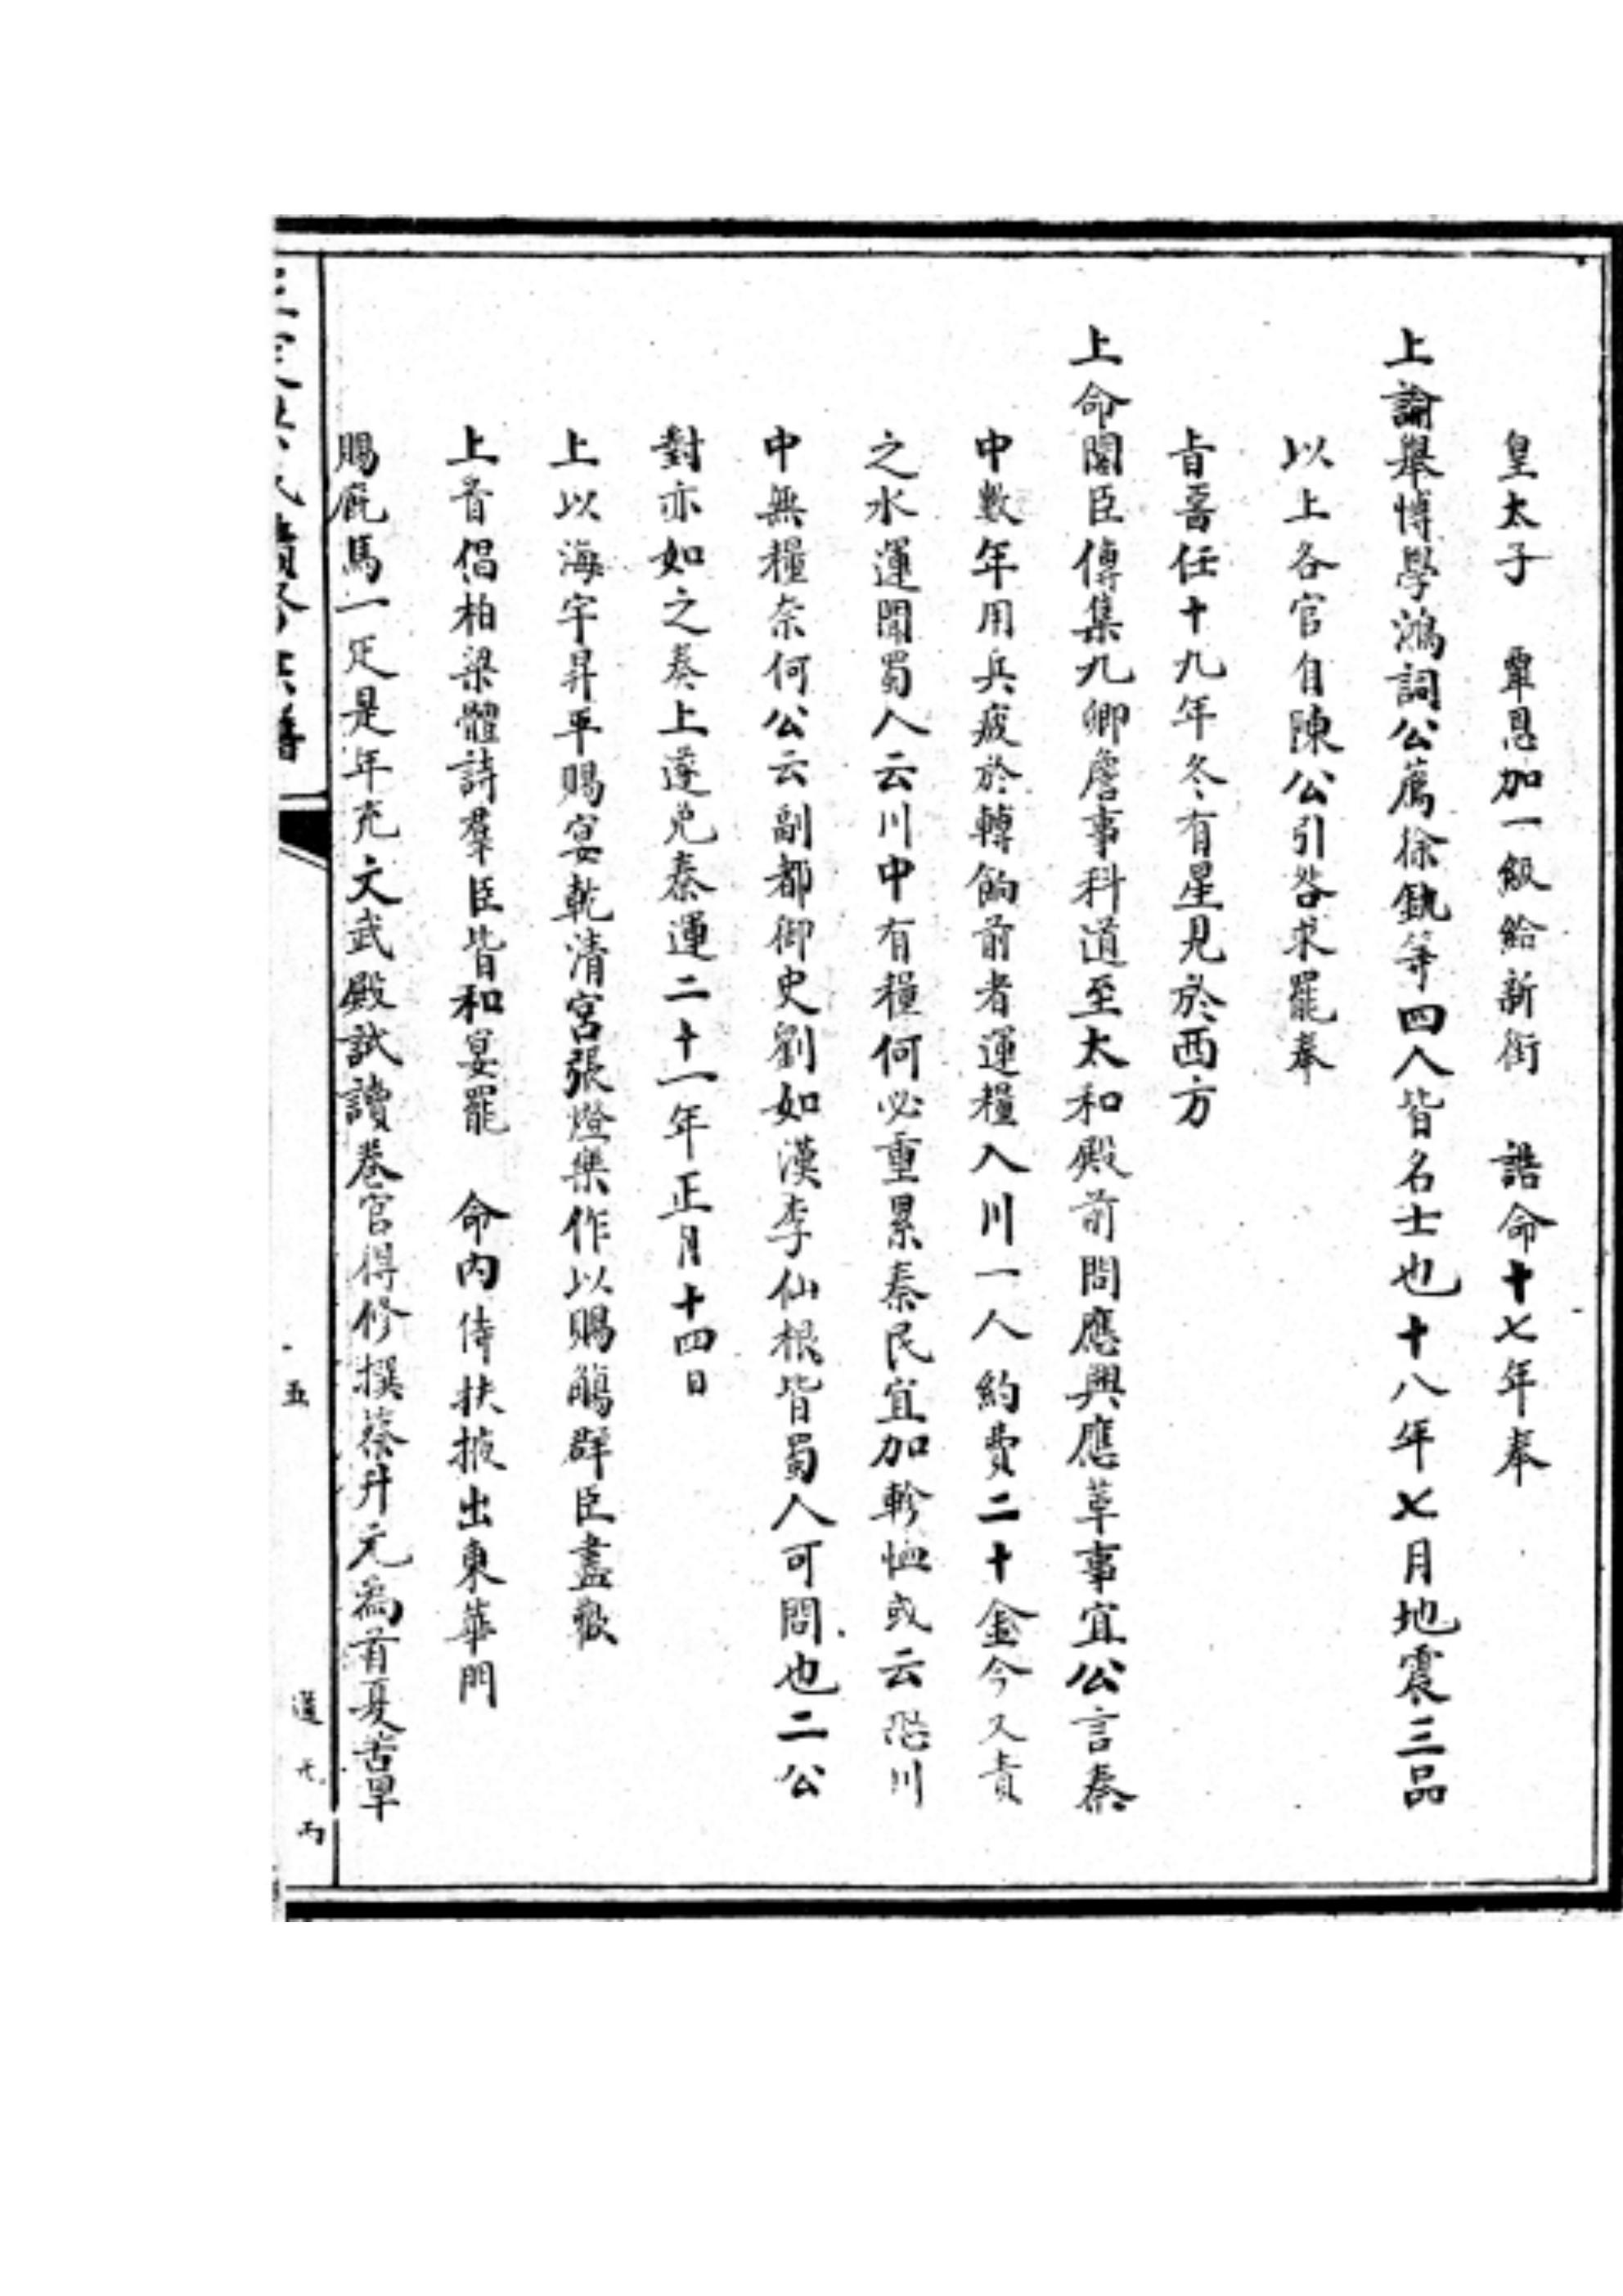 皇太子　覃恩加一級給新銜　誥命十七年奉
上諭舉博學鴻詞公薦徐釚等四人皆名士也十八年七月地震三品
以上各官自陳公引咎求罷奉
旨畱任十九年冬有星見於西方
上命閣臣傳集九卿詹事科道至太和殿前問應興應革事宜公言秦
中數年用兵疲於轉餉前者運糧入川一人約費二十金今又責
之水運聞蜀人云川中有糧何必重累秦民宜加軫恤或云恐川
中無糧奈何公云副都御史劉如漢李仙根皆蜀人可問也二公
對亦如之奏上遂免秦運二十一年正月十四日
上以海宇昇平賜宴乾清宮張燈樂作以賜觴群臣盡歡
上首倡柏梁體詩羣臣皆和宴罷　命內侍扶掖出東華門
賜廐馬一疋是年充文武殿試讀卷官得修撰蔡升元為首夏苦旱
五